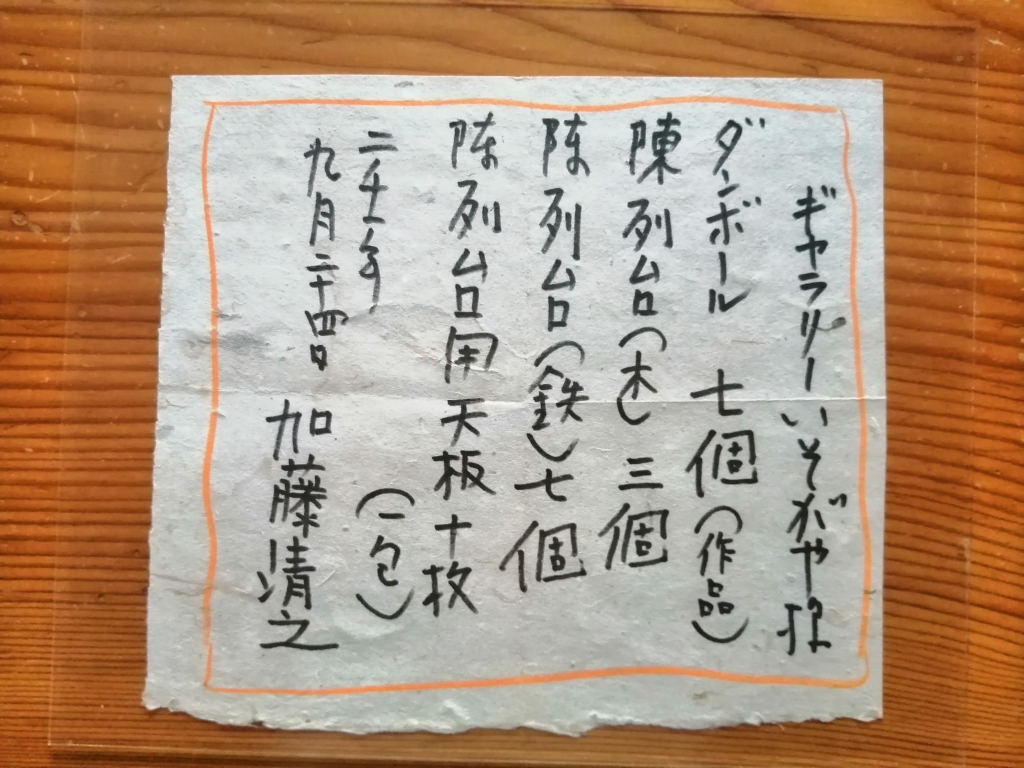 ギャラリーいそがや様
ダンボール 七個(作品)
陳列台(木)三個
陳列台(鉄)七個
陳列台用天板十枚
(一包)
二千十一年
九月二十四日
加藤清之